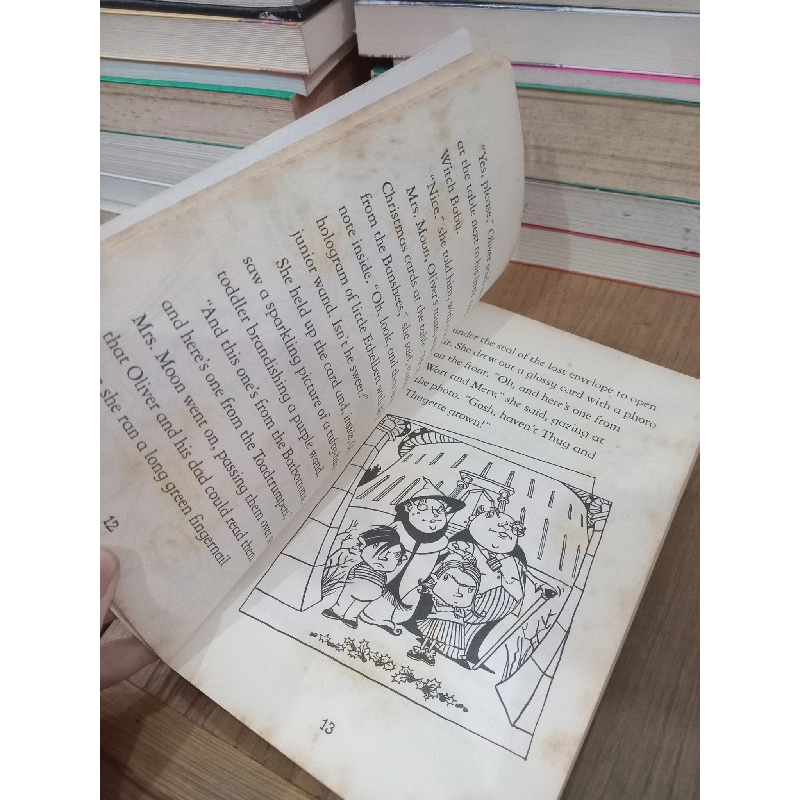 "Yes, please," Oliver
at the table next to his
Witch Baby.
"Nice," she told him,
Mrs. Moon, Oliver's
Christmas cards at the table
from the Banshees," she said
note inside. "Oh, look, and
hologram of little Ethelbert
junior wand. Isn't he sweet?"
She held up the card and,
saw a sparkling picture of a
toddler brandishing a purple wand.
"And this one's from the Batbottoms
and here's one from the Toadtrumpets,"
Mrs. Moon went on, passing them over
that Oliver and his dad could read them
she ran a long green fingernail
12
under the seal of the last envelope to open
it. She drew out a glossy card with a photo
on the front. "Oh, and here's one from
Wart and Mercy," she said, gazing at
the photo. "Gosh, haven't Thug and
Thugette grown!"
13